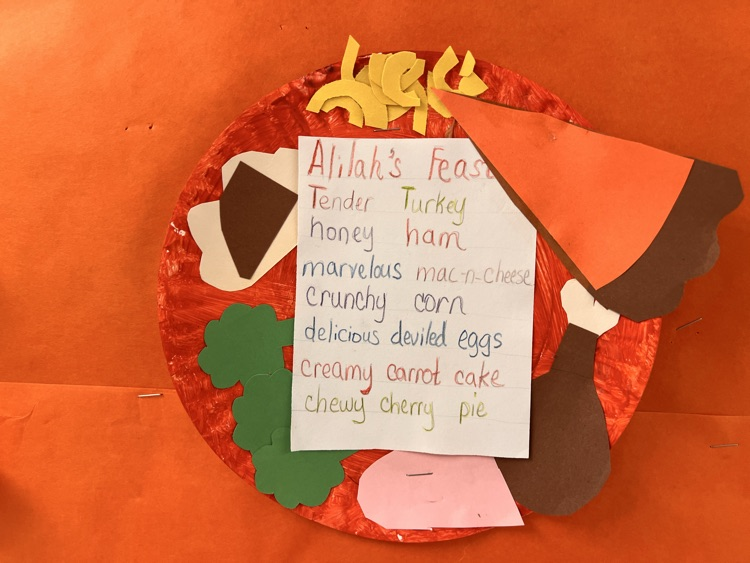 Alilah's Feast
Tender Turkey
honey ham
marvelous mac-n-cheese
crunchy corn
delicious deviled eggs
creamy carrot cake
chewy cherry pie